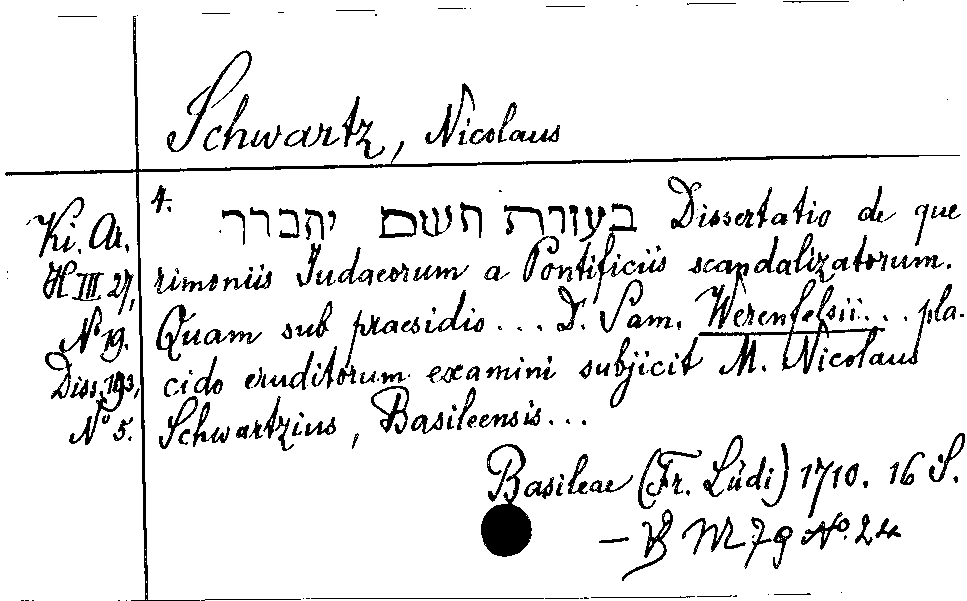 Schwartz, Nicolaus
Ki. Ar.
H III 27,
No 19.
Diss. 193,
No 5.
4.
בעזרת השם יתברך Dissertatio de que
rimoniis Judaeorum a Pontificiis scandalizatorum.
Quam sub praesidio... D. Sam. Werenfelsii... pla-
cido eruditorum examini subjicit M. Nicolaus
Schwartzius, Basileensis...
Basileae (Fr. Lüdi) 1710. 16 S.
— VB M 79 No. 24